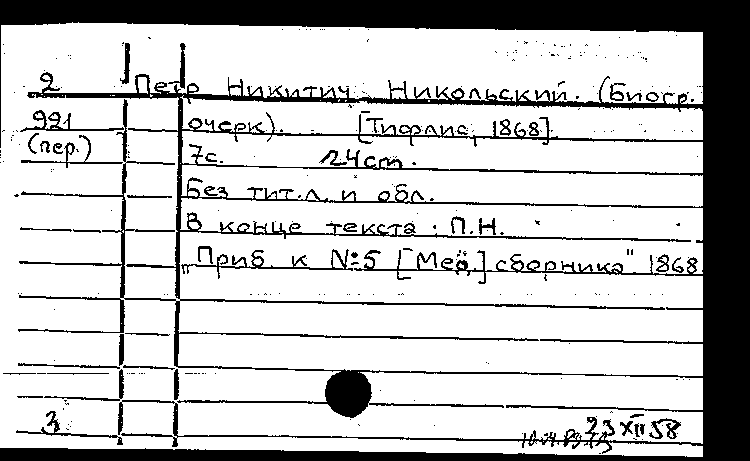 2 Петр Никитич Никольский. (Биогр.
921 очерк). [Тифлис, 1868].
(пер.) 7с. 24cm.
Без тит.л. и обл.
В конце текста: П.Н.
"Приб. к №5 [Мед.] сборника" 1868.
3 23 XII 58